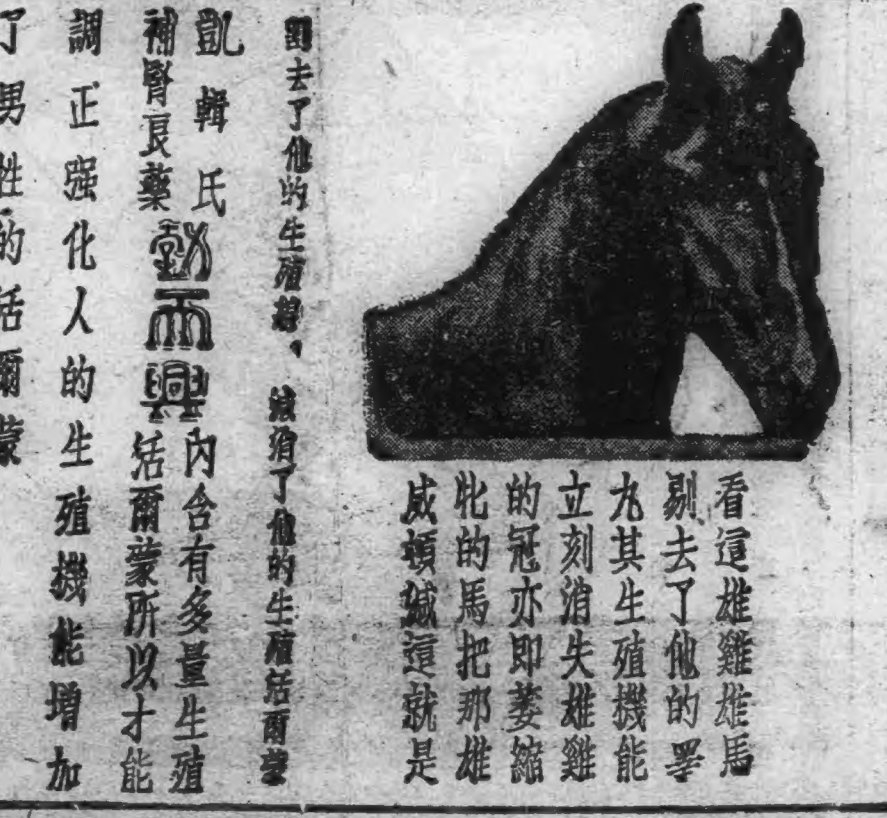 看這雄雞雄馬
剔去了他的睪
丸其生殖機能
立刻消失雄雞
的冠亦即萎縮
牝的馬把那雄
威頓減這就是
割去了他的生殖 減消了他的生殖活爾蒙
凱輯氏
補腎良藥
勢而興
內含有多量生殖
活爾蒙所以才能
調正强化人的生殖機能增加
了男性的活爾蒙